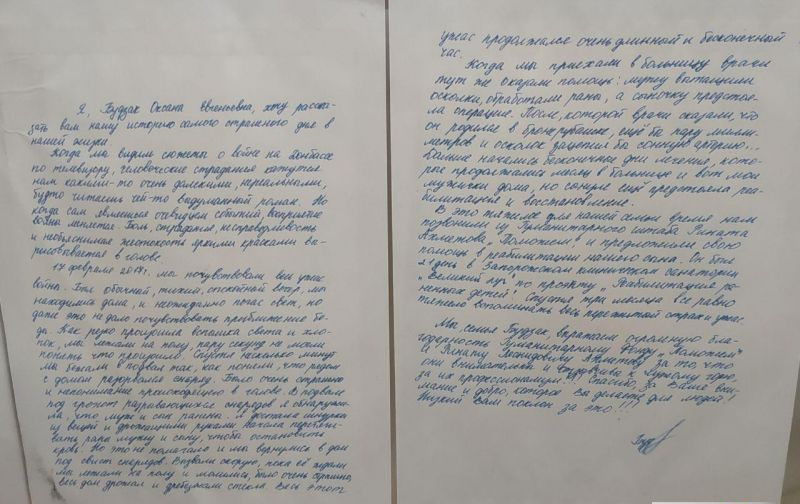 Я, Будзак Оксана Евгеньевна, хочу расска-
зать вам нашу историю самого страшного дня в
нашей жизни.
Когда мы видели сюжеты о войне на Донбассе
по телевизору, человеческие страдания кажутся
нам какими-то очень далекими, нереальными,
будто читаешь чей-то выдуманный роман. Но
когда сам являешься очевидцем событий, восприятие
войны меняется. Боль, страдание несправедливость
и необъяснимая жестокость яркими красками вы-
рисовывается в голове.
17 февраля мы почувствовали весь ужас
войны. Был обычный, тихий, спокойный вечер, мы
находились дома, и неожиданно погас свет, но
даже это не дало почувствовать приближение бе-
ды. Как резко произошла вспышка света и хло-
пок, мы лежали на полу, пару секунд не могли
понять что произошло. Спустя несколько минут
мы бежали в подвал так, как поняли, что рядом
с домом разорвался снаряд. Было очень страшно
и непонимание происходящего в голове. В подвале
под грохот разрывающихся снарядов я обнаружи-
ла, что муж и сын ранены. Я достала шнурки
из вещей и дрожащими руками начала перевязы-
вать раны мужу и сыну, чтобы остановить
кровь. Но это не помогало и мы вернулись в дом
под свист снарядов. Вызвали скорую, пока её ждали
мы лежали на полу и молились, было очень страшно,
весь дом дрожал и дребезжали стекла. Весь этот
ужас продолжался очень длинный и бесконечный
час.
Когда мы приехали в больницу врачи
тут же оказали помощь: мужу вытащили
осколки, обработали раны, а сыночку предстоя-
ла операция. После, которой врачи сказали, что
он родился в бронерубашке, ещё бы пару милли-
метров и осколок зацепил бы сонную артерию...
Дальше начались бесконечные дни лечения, кото-
рые продолжались месяц в больнице и вот мои
мужички дома, но сонуле ещё предстояла реа-
билитация и восстановление.
В это тяжелое для нашей семьи время нам
позвонили из Гуманитарного штаба Рината
Ахметова „Поможем" и предложили свою
помощь в реабилитации нашего сына. Он был
21 день в Запорожском клиническом санатории
„Великий луг" по проекту „Реабилитация ра-
ненных детей". Спустя три месяца все равно
тяжело вспоминать весь пережитый страх и ужас.
Мы, семья Будзак, выражаем огромную бла-
годарность Гуманитарному Фонду „Поможем"
и Ринату Леонидовичу Ахметову за то, что
они внимательны и к чужому горю,
за их профессионализм!!! Спасибо, за Ваше вни-
мание и добро, которое Вы делаете для людей!
Низкий Вам поклон за это!!!